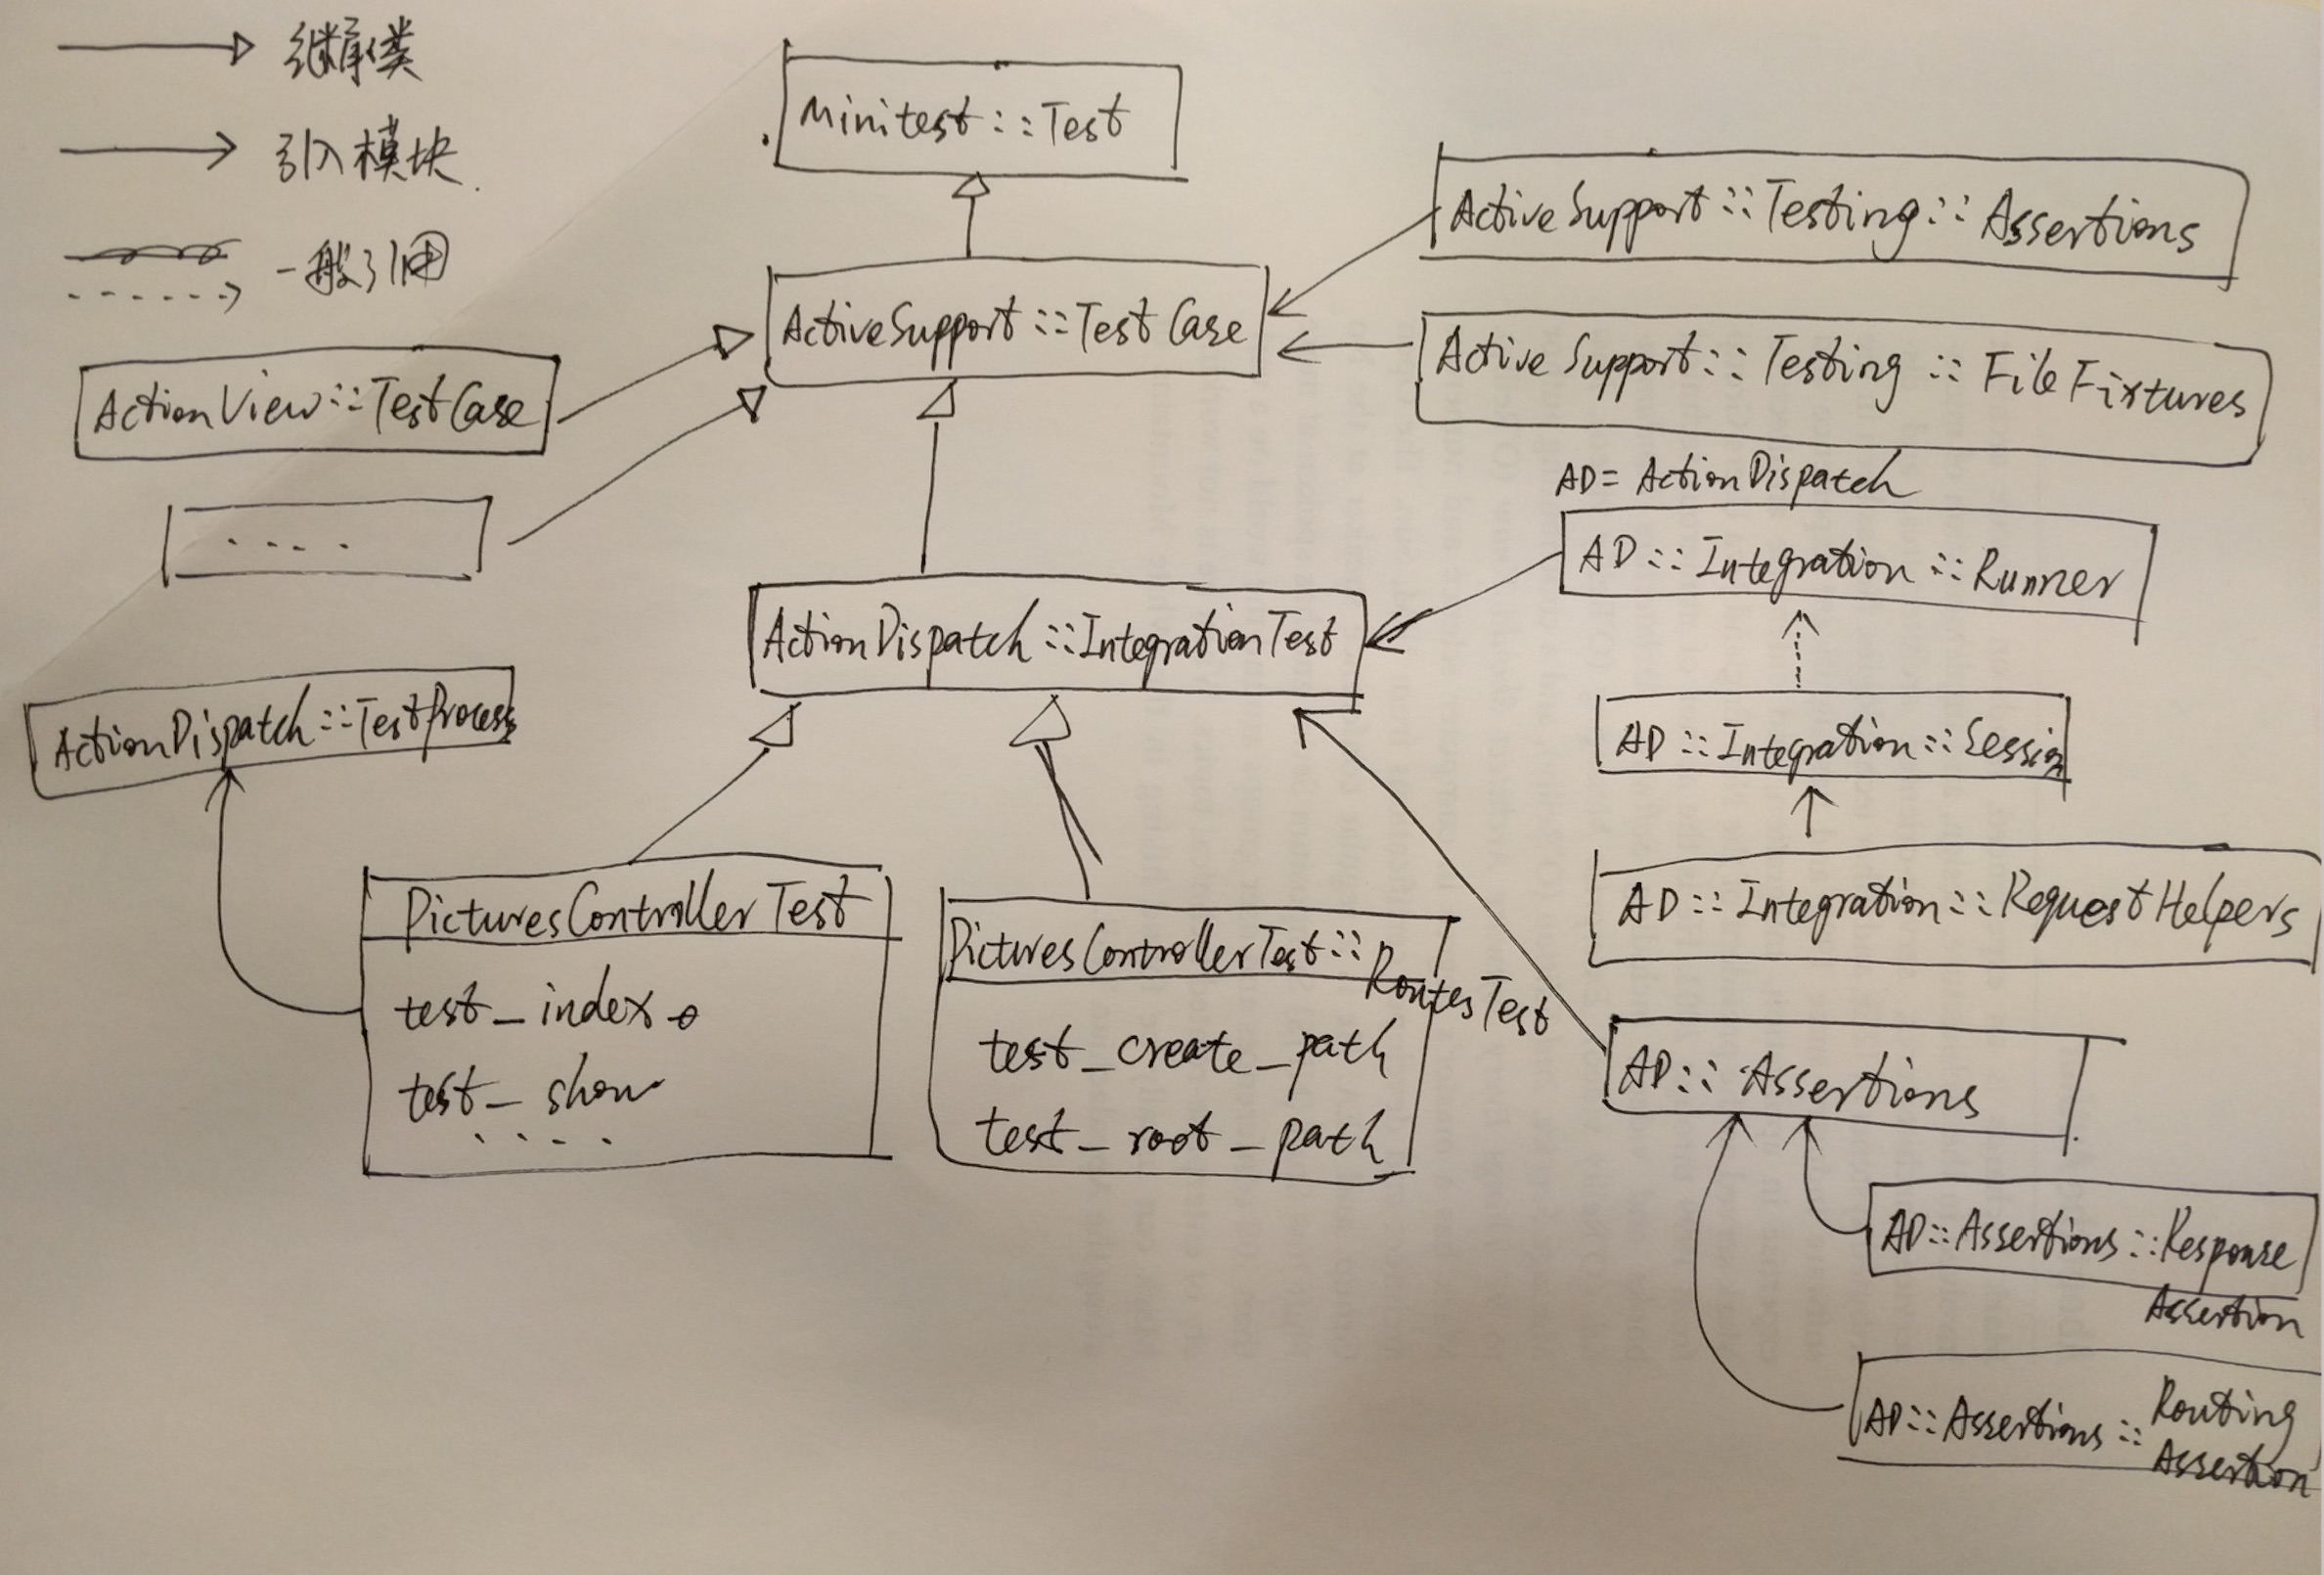 继承类
引入模块.
一般引用
Minitest::Test
ActiveSupport::Testing::Assertions
ActiveSupport::TestCase
ActiveSupport::Testing::FileFixtures
ActionView::TestCase
....
AD = ActionDispatch
AD::Integration::Runner
ActionDispatch::IntegrationTest
ActionDispatch::TestProcess
AD::Integration::Session
AD::Integration::RequestHelpers
PicturesControllerTest
test_index
test_show
....
PicturesControllerTest::
RoutesTest
test_create_path
test_root_path
AD::Assertions
AD::Assertions::Response
Assertion
AD::Assertions::Routing
Assertion